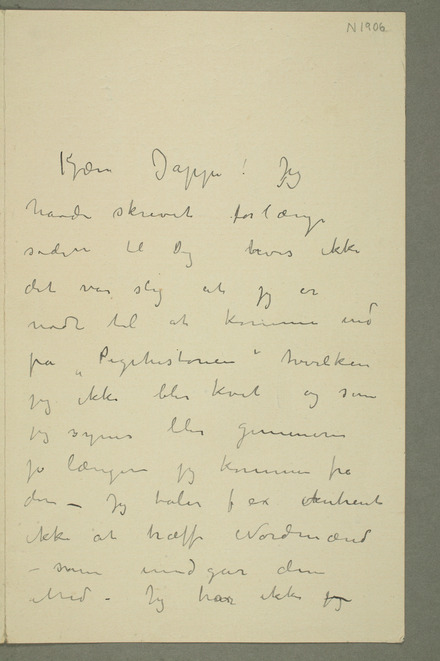 N 1906
Kjære Jappe! Jeg
havde skrevet forlænge
siden til Dig hvis ikke
det var slig at jeg er
nødt til at komme ind
på „Pigehistorien“ hvilken
jeg ikke blir kvit og som
jeg synes blir gemenere
jo længere jeg kommer fra
den – Jeg taaler f ex
ikke at træffe Nordmænd
– som undgår dem
– Jeg har ikke jeg